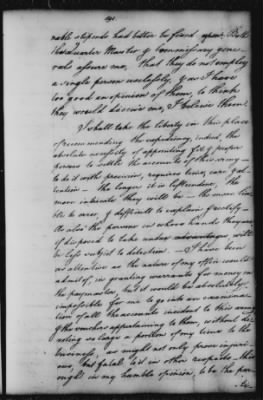 nable stipends had better be fixed upon. Both
the Quarter Master & Commissary gene-
rals assure me, that they do not employ
a single person uselessly, & as I have
too good an opinion of them, to think
they would deceive me, I believe them.
I shall take the liberty in this place
of recommending the expediency, indeed, the
absolute necessity of appointing fit & proper
persons to settle the accounts of this army —
to do it with precision, requires time, care & at-
tention — The longer it is left undone, the
more intricate they will be — the more lia-
ble to error, & difficult to explain, & rectify —
As also the persons in whose hands they are,
if disposed to take undue advantages will
be less subject to detection — I have been
as attentive as the nature of my office would
admit of, in granting warrants for money on
the paymaster, but it would be absolutely
impossible for me to go into an examina-
tion of all the accounts incident to this army,
& the vouchers appertaining to them, without de-
voting so large a portion of my time to the
business, as might not only prove injuri-
ous, but fatal to it in other respects — this
ought in my humble opinion, to be the par-